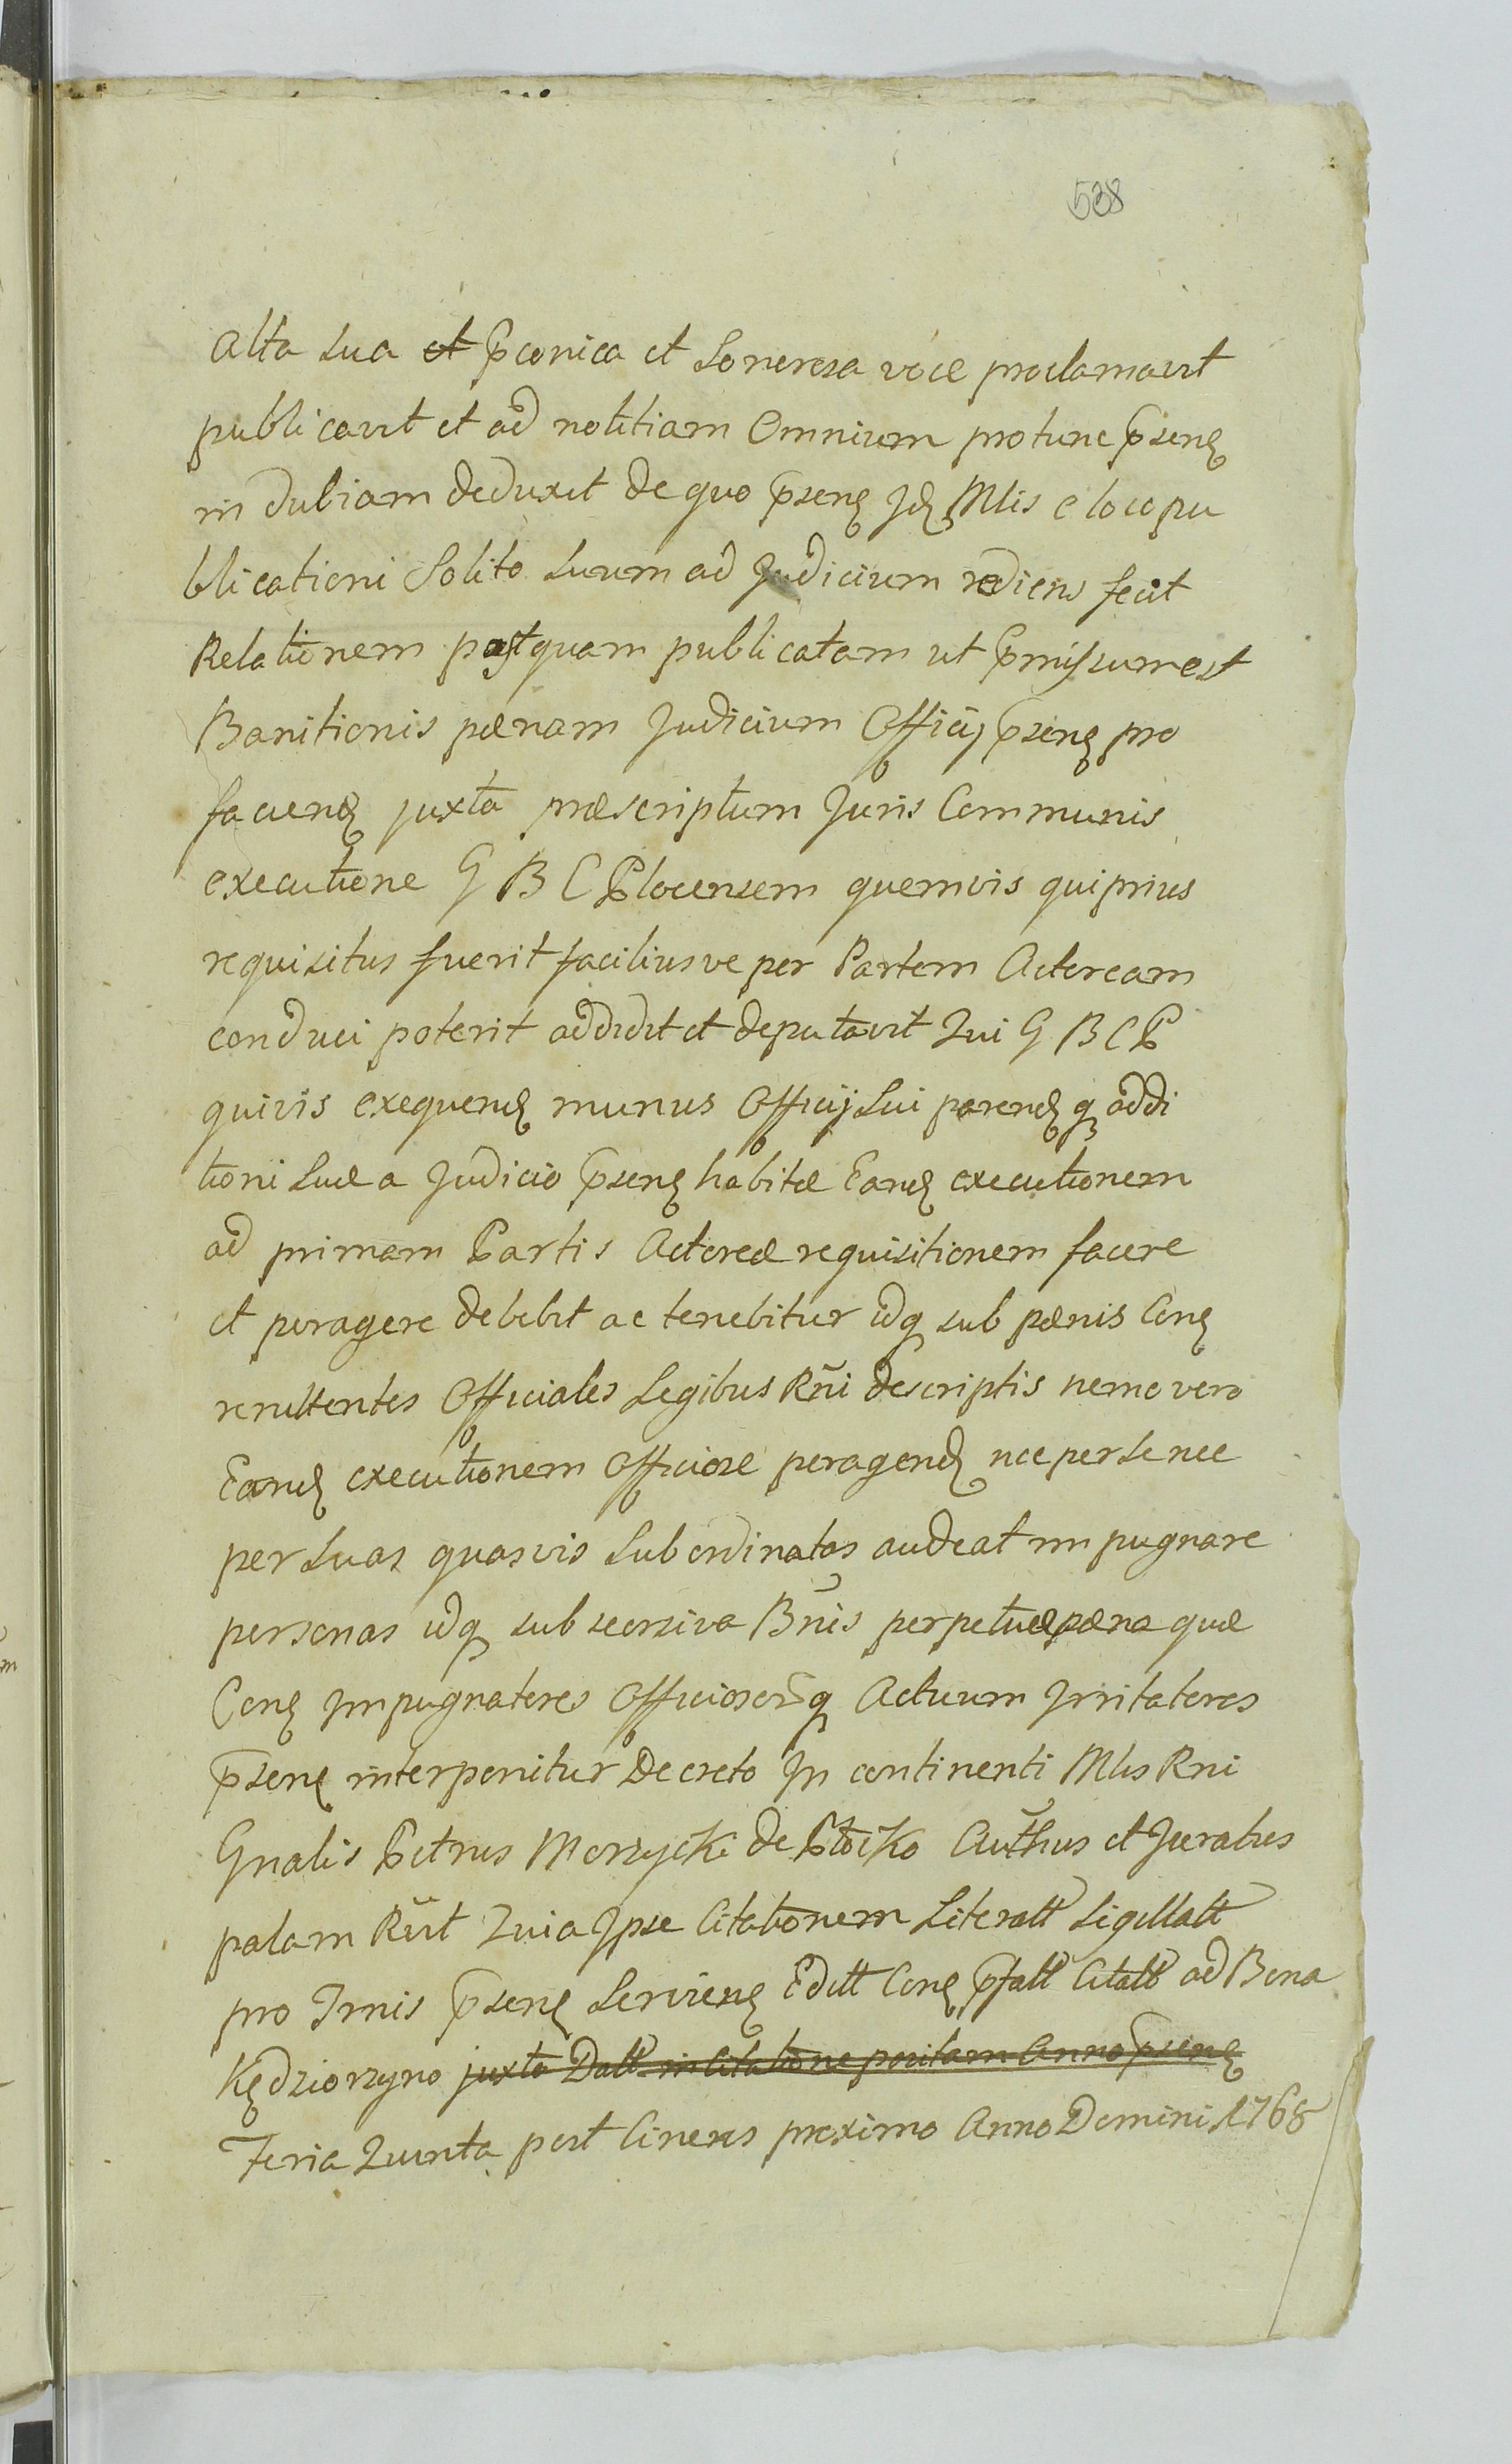 538
alta sua et p̄conica et Sonorosa voce proclamavit
publicavit et ad notitiam Omnium protunc p̄senꝭ
indubiam deduxit de quo p̄senꝭ Jdꝭ Mlis e loco pu
blicationi Solito suum ad Judicium rediens fecit
Relationem postquam publicatam ut p̄missum est
Banitionis pænam Judicium Officij p̄senꝭ pro
facienꝭ juxta præscriptum Juris Communis
executione G B C Plocensem quemvis qui prius
requisitus fuerit faciliusve per Partem Actoream
conduci poterit addidit et deputavit Qui G B C P
quivis exequendꝭ munus Officij Sui parendꝭ qꝫ addi
tioni Suæ a Judicio p̄senꝭ habitæ Eandꝭ executionem
ad primam Partis Actoreæ requisitionem facere
et peragere debebit ac tenebitur idqꝫ sub pænis Conꝭ
renittentes Officiales Legibus Rñi descriptis nemo vero
Eandꝭ executionem Officiose peragendꝭ nec per se nec
per suas quasvis Subordinatas audeat impugnare
personas idqꝫ sub seorsiva Bñis perpetuæ pæna quæ
Conꝭ Impugnatores Officiosorūqꝫ Actuum Irritatores
p̄senꝭ interponitur Decreto In continenti Mlis Rni
Gnalis Petrus Morzycki de Płocko Authus et Juratus
palam Rñt Quia Ipse Citationem Literatt Sigillatt
pro Trnis p̄senꝭ Servienꝭ Editt Conꝭ p̄fatt Citatt ad Bona
Kędziorzyno juxta Datt in Citatione positam Anno p̄senꝭ
Feria Quinta post Cineres proximo Anno Domini 1768